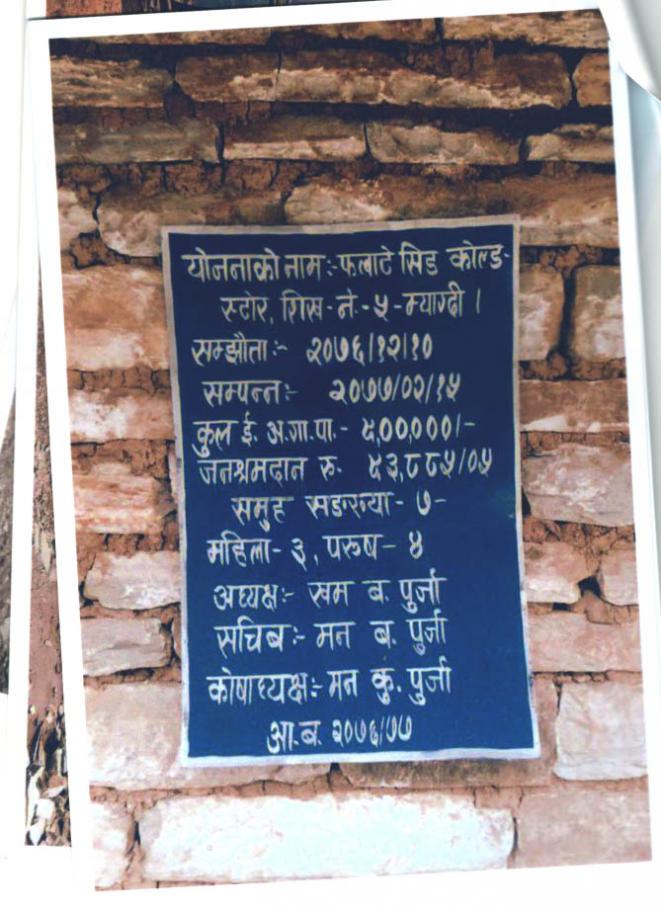 योजनाको नाम :- फलाटे सिड कोल्ड-
स्टोर, शिख - नं.- ५ - म्याग्दी ।
सम्झौता :- २०७६/१२/१०
सम्पन्न :- २०७७/०२/१५
कुल ई. अ.गा.पा. - ५,००,०००/-
जनश्रमदान रु. ५३,८८५/०५
समुह सङख्या - ७ -
महिला - ३, परुष - ४
अध्यक्ष :- खम ब. पुर्जा
सचिब :- मन ब. पुर्जा
कोषाध्यक्ष :- मन कु. पुर्जा
आ.ब. २०७६/७७